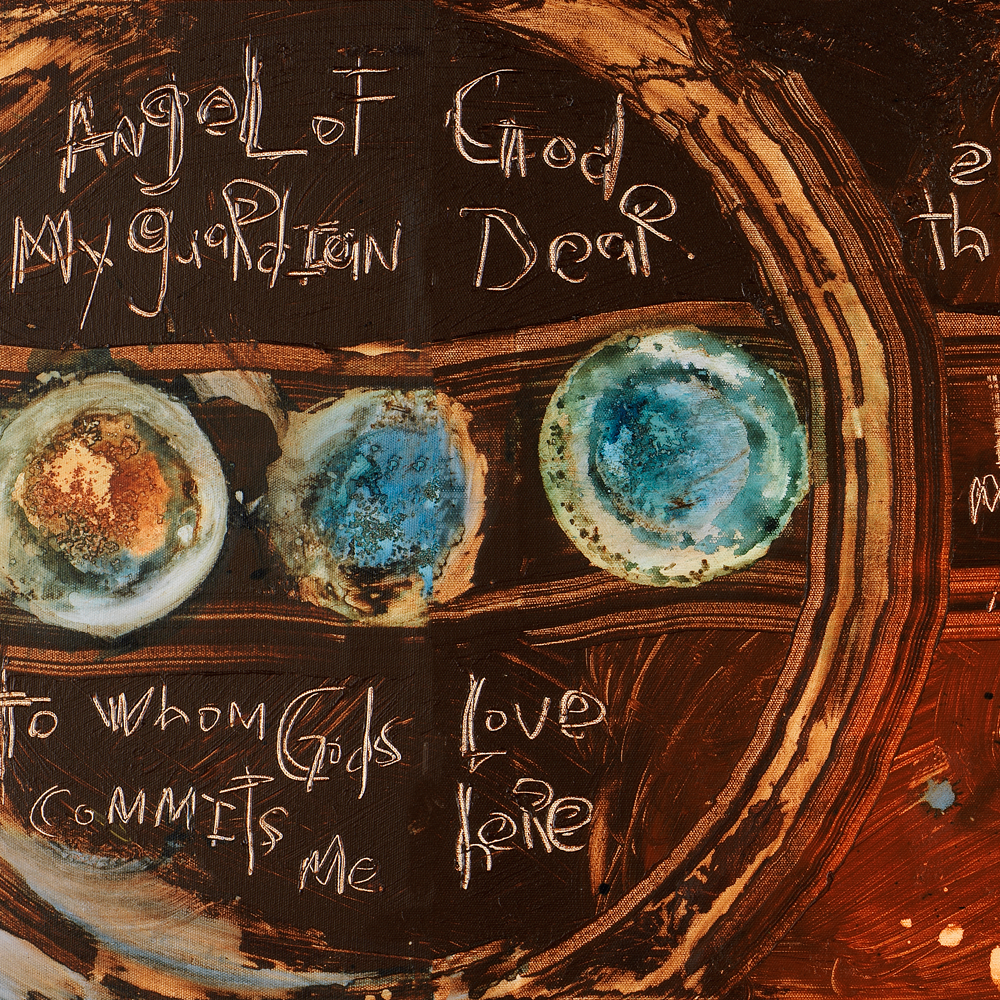 Angel of God
My guardian Dear.
to whom Gods Love
commits me here
e
th